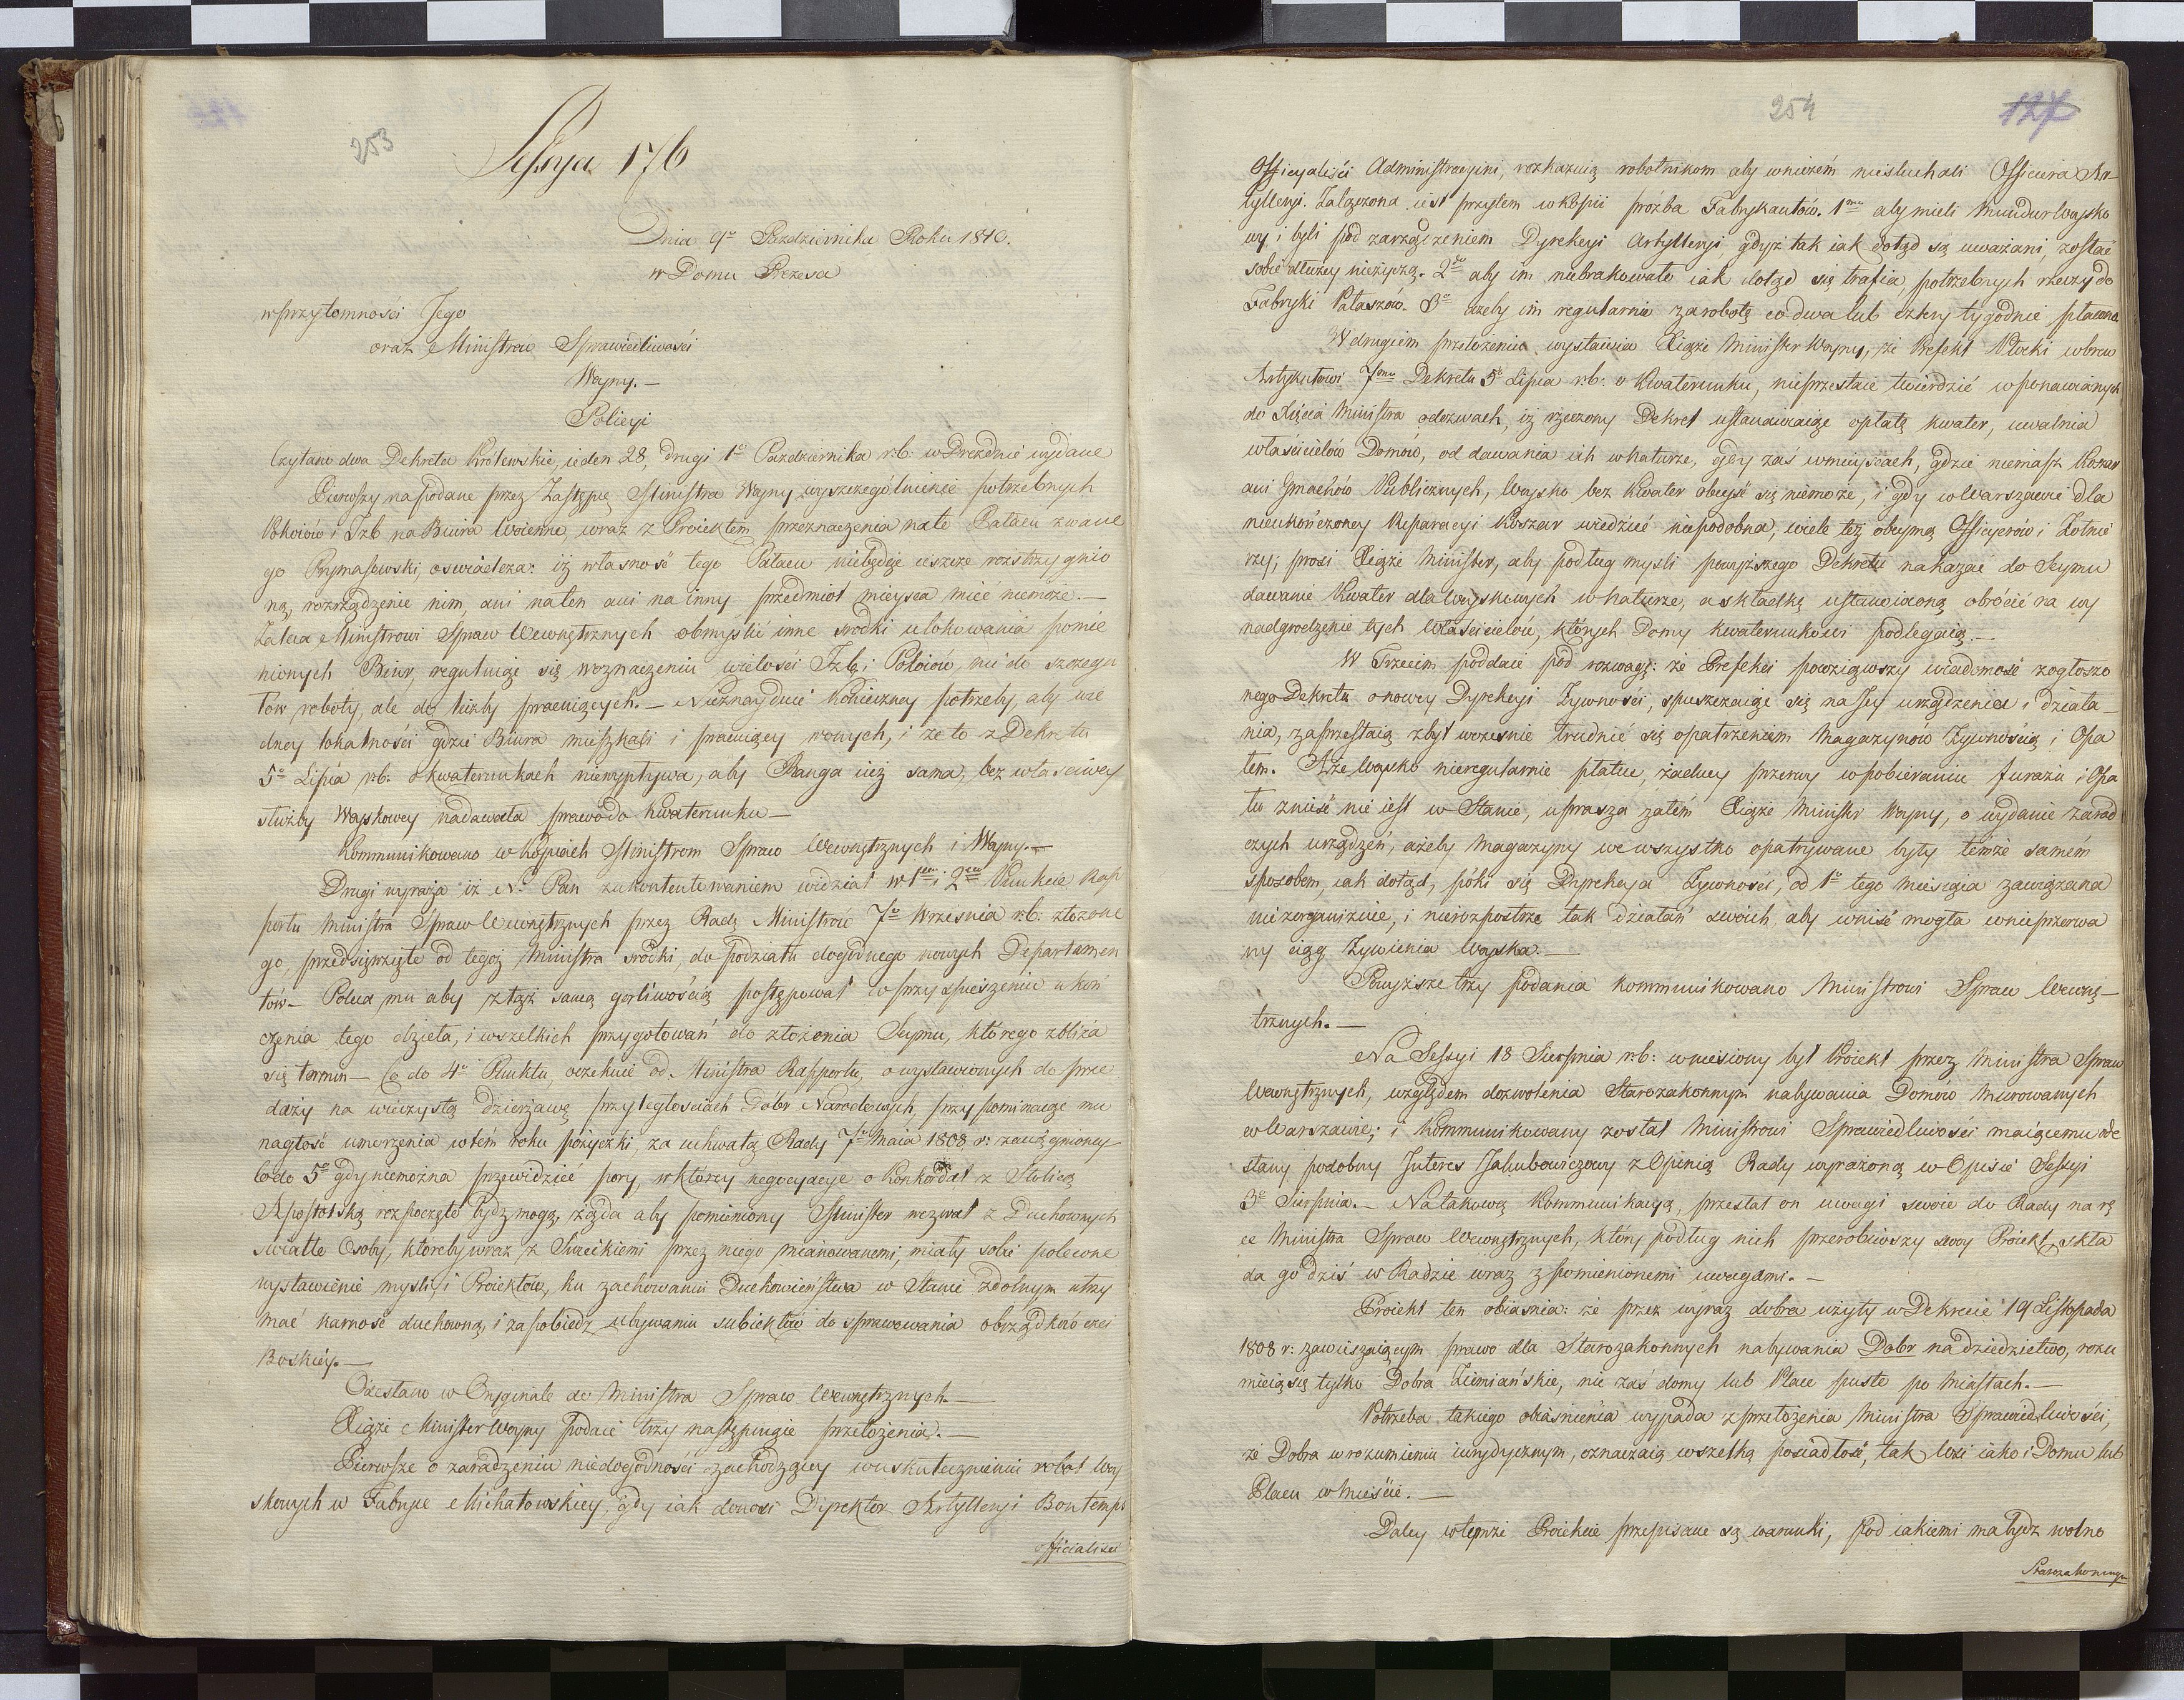 253
Sessya 176
Dnia 9º Pazdziernika Roku 1810.
w Domu Prezesa
w przytomności Jego
oraz Ministrów Sprawiedliwości
Woyny.—
Policyi
Czytano dwa Dekreta Królewskie, ieden 28, drugi 1º Pazdziernika r.b. w Dreznie wydane
Pierwszy na podane przez Zastępcę Ministra Woyny wyszczególnienie potrzebnych
Pokoiów i Izb na Biura Woienne, wraz z Proiektem przeznaczenia na to Pałacu zwane
go Prymasowski, oswiadcza: iż własność tego Pałacu niebędąc ieszcze rozstrzygnio
ną, rozrządzenie nim, ani na ten ani na inny przedmiot mieysca mieć niemoże.—
Zaleca Ministrowi Spraw Wewnętrznych obmyślić inne srodki ulokowania pomie
nionych Biur, reguluiąc się w oznaczeniu wielości Izb i Pokoiów, nie do szczegu
łów roboty, ale do liczby pracuiących.— Nieznayduie konieczney potrzeby, aby w ie
dney lokalności gdzie Biura mieszkali i pracuiący w onych, i że to z Dekretu
5º Lipca r.b. o kwaterunkach niewypływa, aby Ranga iuż sama, bez właściwey
służby Woyskowey nadawała prawo do kwaterunku—
Kommunikowano w kopiach Ministrom Spraw Wewnętrznych i Woyny.—
Drugi wyraża iż N. Pan z ukontentowaniem widział w 1ᵐ i 2ᵐ Punkcie Rap
portu Ministra Spraw Wewnętrznych przez Radę Ministrów 7º Wrzesnia r.b. złożone
go, przedsięwzięte od tegoż Ministra srodki, do podziału dogodnego nowych Departamen
tów— Poleca mu aby z tąż samą gorliwością postępował w przyspieszeniu ukoń
czenia tego dzieła, i wszelkich przygotowań do złożenia Seymu, którego zbliża
się termin— Co do 4º Punktu, oczekuie od Ministra Rapportu, o wystawionych do prze
daży na wieczystą dzierżawę przyległościach Dobr Narodowych, przypominaiąc mu
nagłość umorzenia w tém roku pożyczki, za uchwałą Rady 7º Maia 1808 r: zaciągnioney
Co do 5º gdy niemożna przewidzieć pory, w którey negocyacye o Konkordat z Stolicą
Apostolską rozpoczęte bydz mogą, żąda aby pomieniony Minister wezwał z Duchownych
swiatłe Osoby, któreby wraz z Swieckiemi przez niego mianowanemi, miały sobie polecone
wystawienie mysli, i Proiektów, ku zachowaniu Duchowieństwa w Stanie zdolnym utrzy
mać karność duchowną, i zapobiedz ubywaniu subiektów do sprawowania obrządków czci
Boskiéy.—
Odesłano w Oryginale do Ministra Spraw Wewnętrznych.—
Xiąże Minister Woyny podaie trzy następuiące przełożenia.—
Pierwsze o zaradzeniu niedogodności zachodzącey w uskutecznieniu robot Woy
skowych w Fabryce Michałowskiey, gdy iak donosi Dyrektor Artylleryi Bontemps
officialisci
254
127
Officyaliści Administracyini, rozkazuią robotnikom aby w niczém niesłuchali Officiera Ar-
tylleryi. Załączona iest przytem w kopii prózba Fabrykantów. 1ᵐᵒ aby mieli Mundur Woysko
wy i byli pod zarządzeniem Dyrekcyi Artylleryi, gdyż tak iak dotąd są uważani, zostać
sobie dłużey nieżyczą. 2ᵈᵒ aby im niebrakowało iak dotąd się trafia, potrzebnych rzeczy do
Fabryki Pałaszów. 3º ażeby im regularnie za robotę co dwa lub cztery tygodnie płacono.
W drugiem przełożeniu wystawia Xiąże Minister Woyny, że Prefekt Płocki wbrew
Artykułowi 7ᵐᵘ Dekretu 5º Lipca r.b: o Kwaterunku, nieprzestaie twierdzić w ponawianych
do Xięcia Ministra odezwach, iż rzeczony Dekret ustanawiaiąc opłatę kwater, uwalnia
właścicielów Domów, od dawania ich w naturze, gdy zaś w mieyscach, gdzie niemasz Koszar
ani Gmachów Publicznych, Woysko bez Kwater obeyść się niemoże, i gdy w Warszawie dla
nieukończoney Reparacyi Koszar wiedzieć niepodobna, wiele też obeymą Officyerów i Żołnie
rzy; prosi Xiąże Minister, aby podług mysli powyższego Dekretu nakazać do Seymu
dawanie Kwater dla Woyskowych w naturze, a składkę ustanowioną obrócić na wy
nadgrodzenie tych Właścicielów, których Domy kwaterunkowi podlegaią.—
W Trzecim poddaie pod rozwagę: że Prefekci powziąwszy wiadomość z ogłoszo
nego Dekretu o nowey Dyrekcyi Żywności, spuszczaiąc się na Jey urządzenia i działa_
nia, zaprzestaią zbyt wcześnie trudnić się opatrzeniem Magazynów Żywnością i Opa
łem. A że Woysko nieregularnie płatne, żadney przerwy w pobieraniu furażu i Opa
łu znieść nie iest w Stanie, uprasza zatém Xiąże Minister Woyny, o wydanie zarad
czych urządzeń, ażeby Magazyny we wszystko opatrywane były témże samém
sposobem, iak dotąd, póki się Dyrekcya Żywności, od 1º tego Miesiąca zawiązana
niezorganizuie, i nierozpostrze tak działań swoich, aby wniść mogła w nieprzerwa
ny ciąg Żywienia Woyska.—
Powyższe trzy podania kommunikowano Ministrowi Spraw Wewnę—
trznych.—
Na Sessyi 18 Sierpnia r.b: wniesiony był Proiekt przez Ministra Spraw
Wewnętrznych, względem dozwolenia Starozakonnym nabywania Domów Murowanych
w Warszawie; i kommunikowany został Ministrowi Sprawiedliwości maiącemu ode
słany podobny Interes Jakubowiczowy z Opinią Rady wyrażoną w Opisie Sessyi
3º Sierpnia.— Na takową Kommunikacyą, przesłał on uwagi swoie do Rady na rę
ce Ministra Spraw Wewnętrznych, który podług nich przerobiwszy swoy Proiekt, skła
da go dziś w Radzie wraz z pomienionemi uwagami.—
Proiekt ten obiasnia: że przez wyraz dobra użyty w Dekrecie 19 Listopada
1808 r: zawieszaiącym prawo dla Starozakonnych nabywania Dobr na dziedzictwo, rozu
mieią się tylko Dobra Ziemiańskie, nie zaś domy lub Place puste po Miastach.—
Potrzeba takiego obiaśnienia wypada z przełożenia Ministra Sprawiedliwości,
że Dobra w rozumieniu iurydycznym, oznaczaią wszelką posiadłość, tak Wsi iako i Domu lub
Placu w Mieście.—
Daley w temże Proiekcie przepisane są warunki, pod iakiemi ma bydz wolno
Starozakonnym